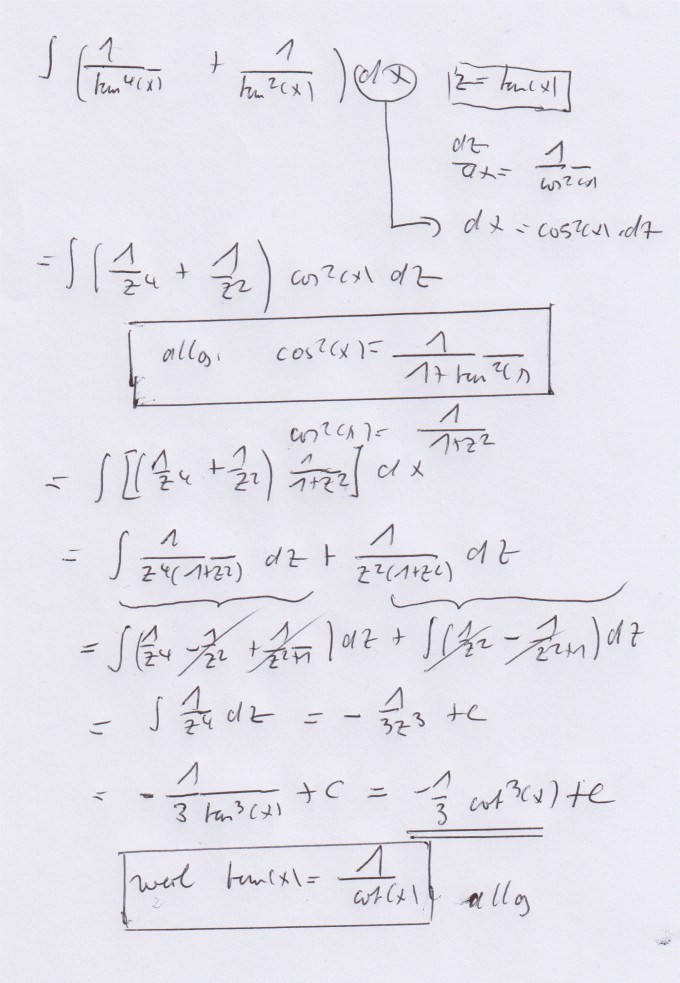 ∫ (1/tan⁴(x) + 1/tan²(x)) dx z = tan(x)
dz/dx = 1/cos²(x)
dx = cos²(x) · dz
= ∫ (1/z⁴ + 1/z²) cos²(x) dz
allg. cos²(x) = 1/(1+tan²(x))
cos²(x) = 1/(1+z²)
= ∫ [(1/z⁴ + 1/z²) 1/(1+z²)] dx
= ∫ 1/(z⁴(1+z²)) dz + 1/(z²(1+z²)) dz
= ∫ (1/z⁴ - 1/z² + 1/(z²+1)) dz + ∫ (1/z² - 1/(z²+1)) dz
= ∫ 1/z⁴ dz = - 1/(3z³) + C
= - 1/(3 tan³(x)) + C = -1/3 cot³(x) + C
weil tan(x) = 1/cot(x) allg